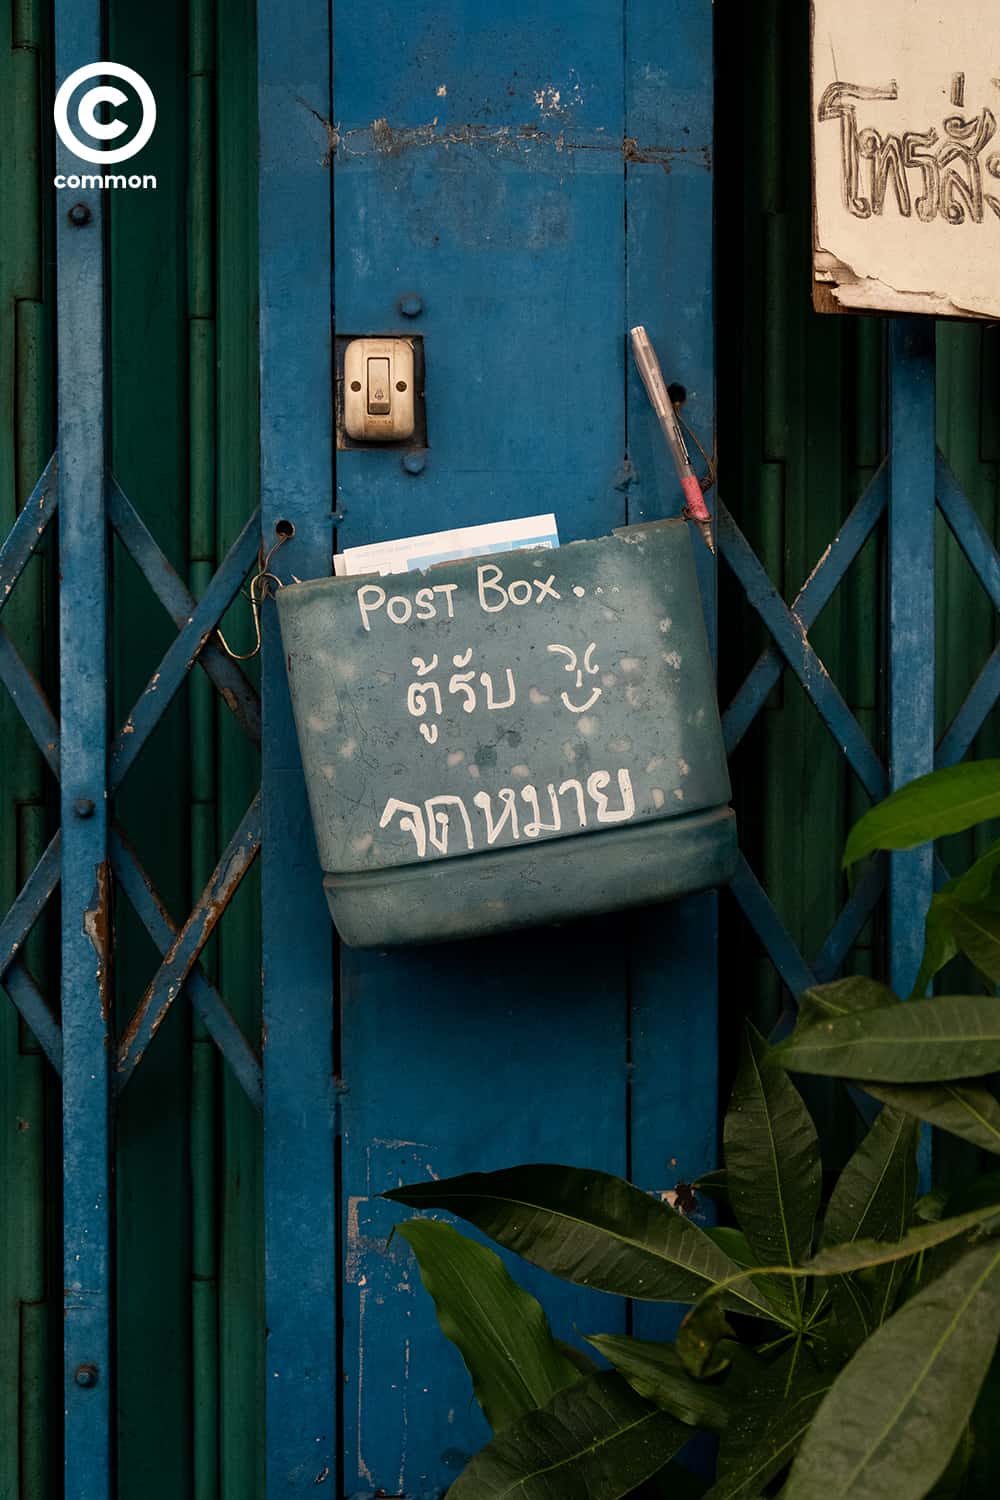 common
โทรสั
Post Box...
ตู้รับ
จดหมาย